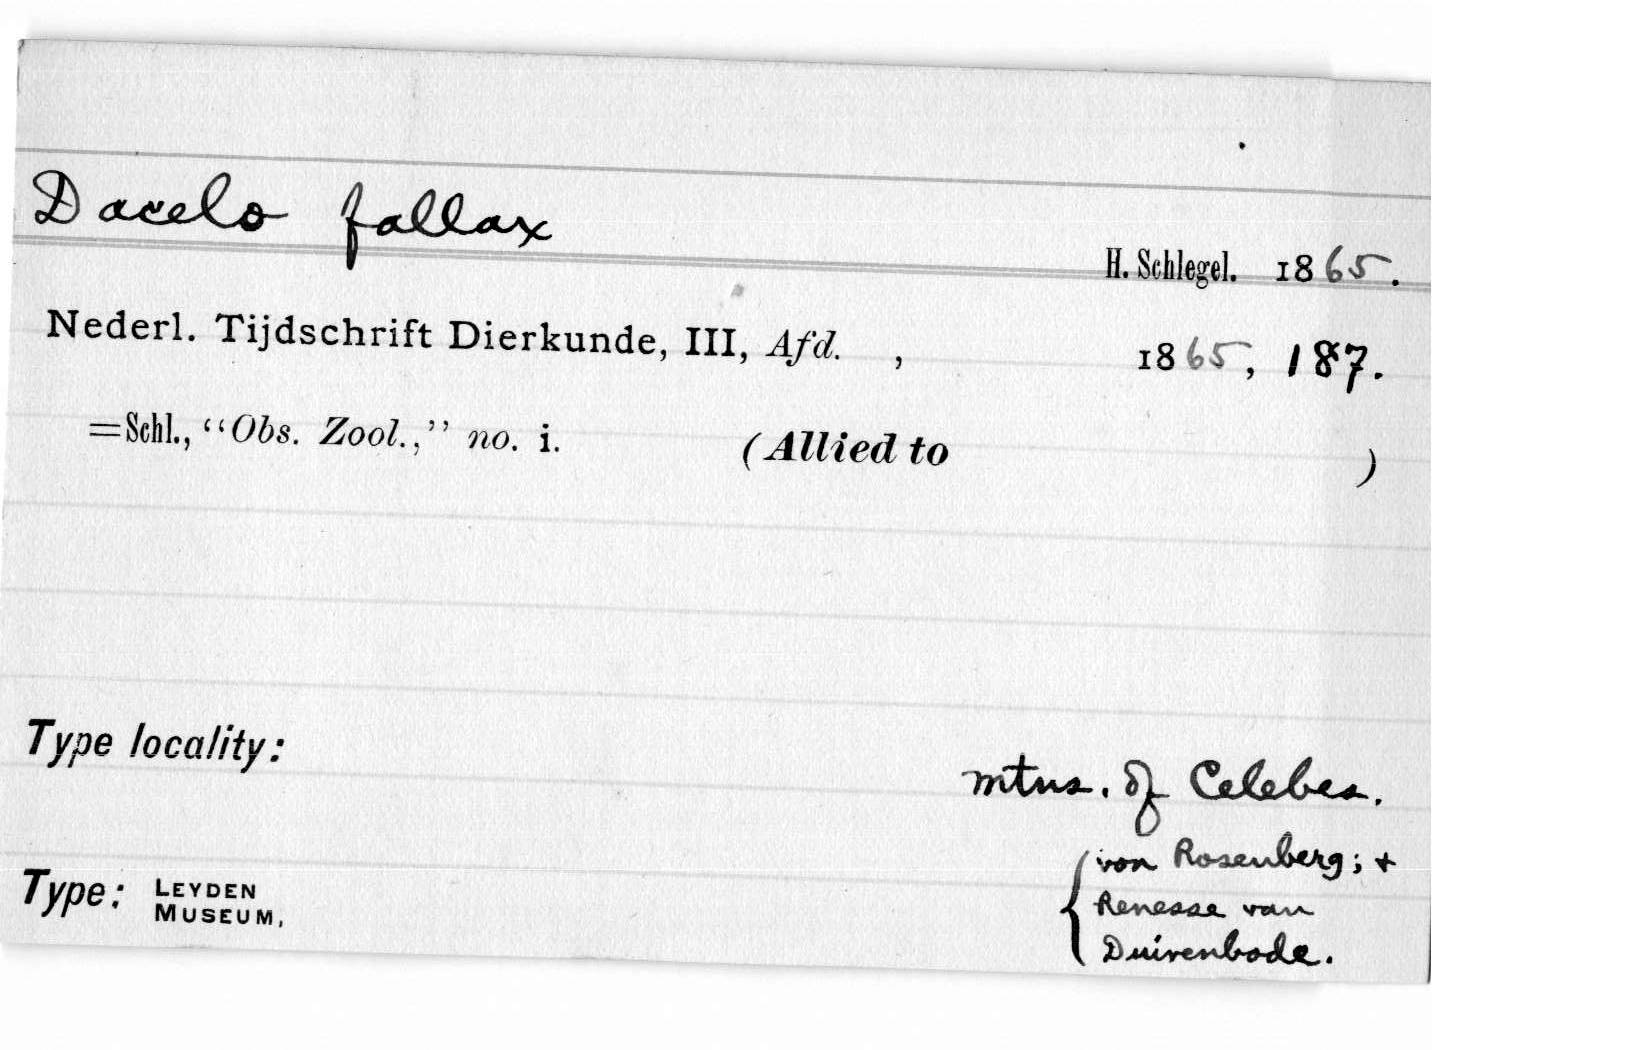 Dacelo fallax
H. Schlegel. 1865.
Nederl. Tijdschrift Dierkunde, III, Afd. , 1865, 187.
=Schl., “Obs. Zool.,” no. i. (Allied to )
Type locality:
mtns. of Celebes.
Type: LEYDEN MUSEUM,
{von Rosenberg; +
Renesse van
Duivenbode.